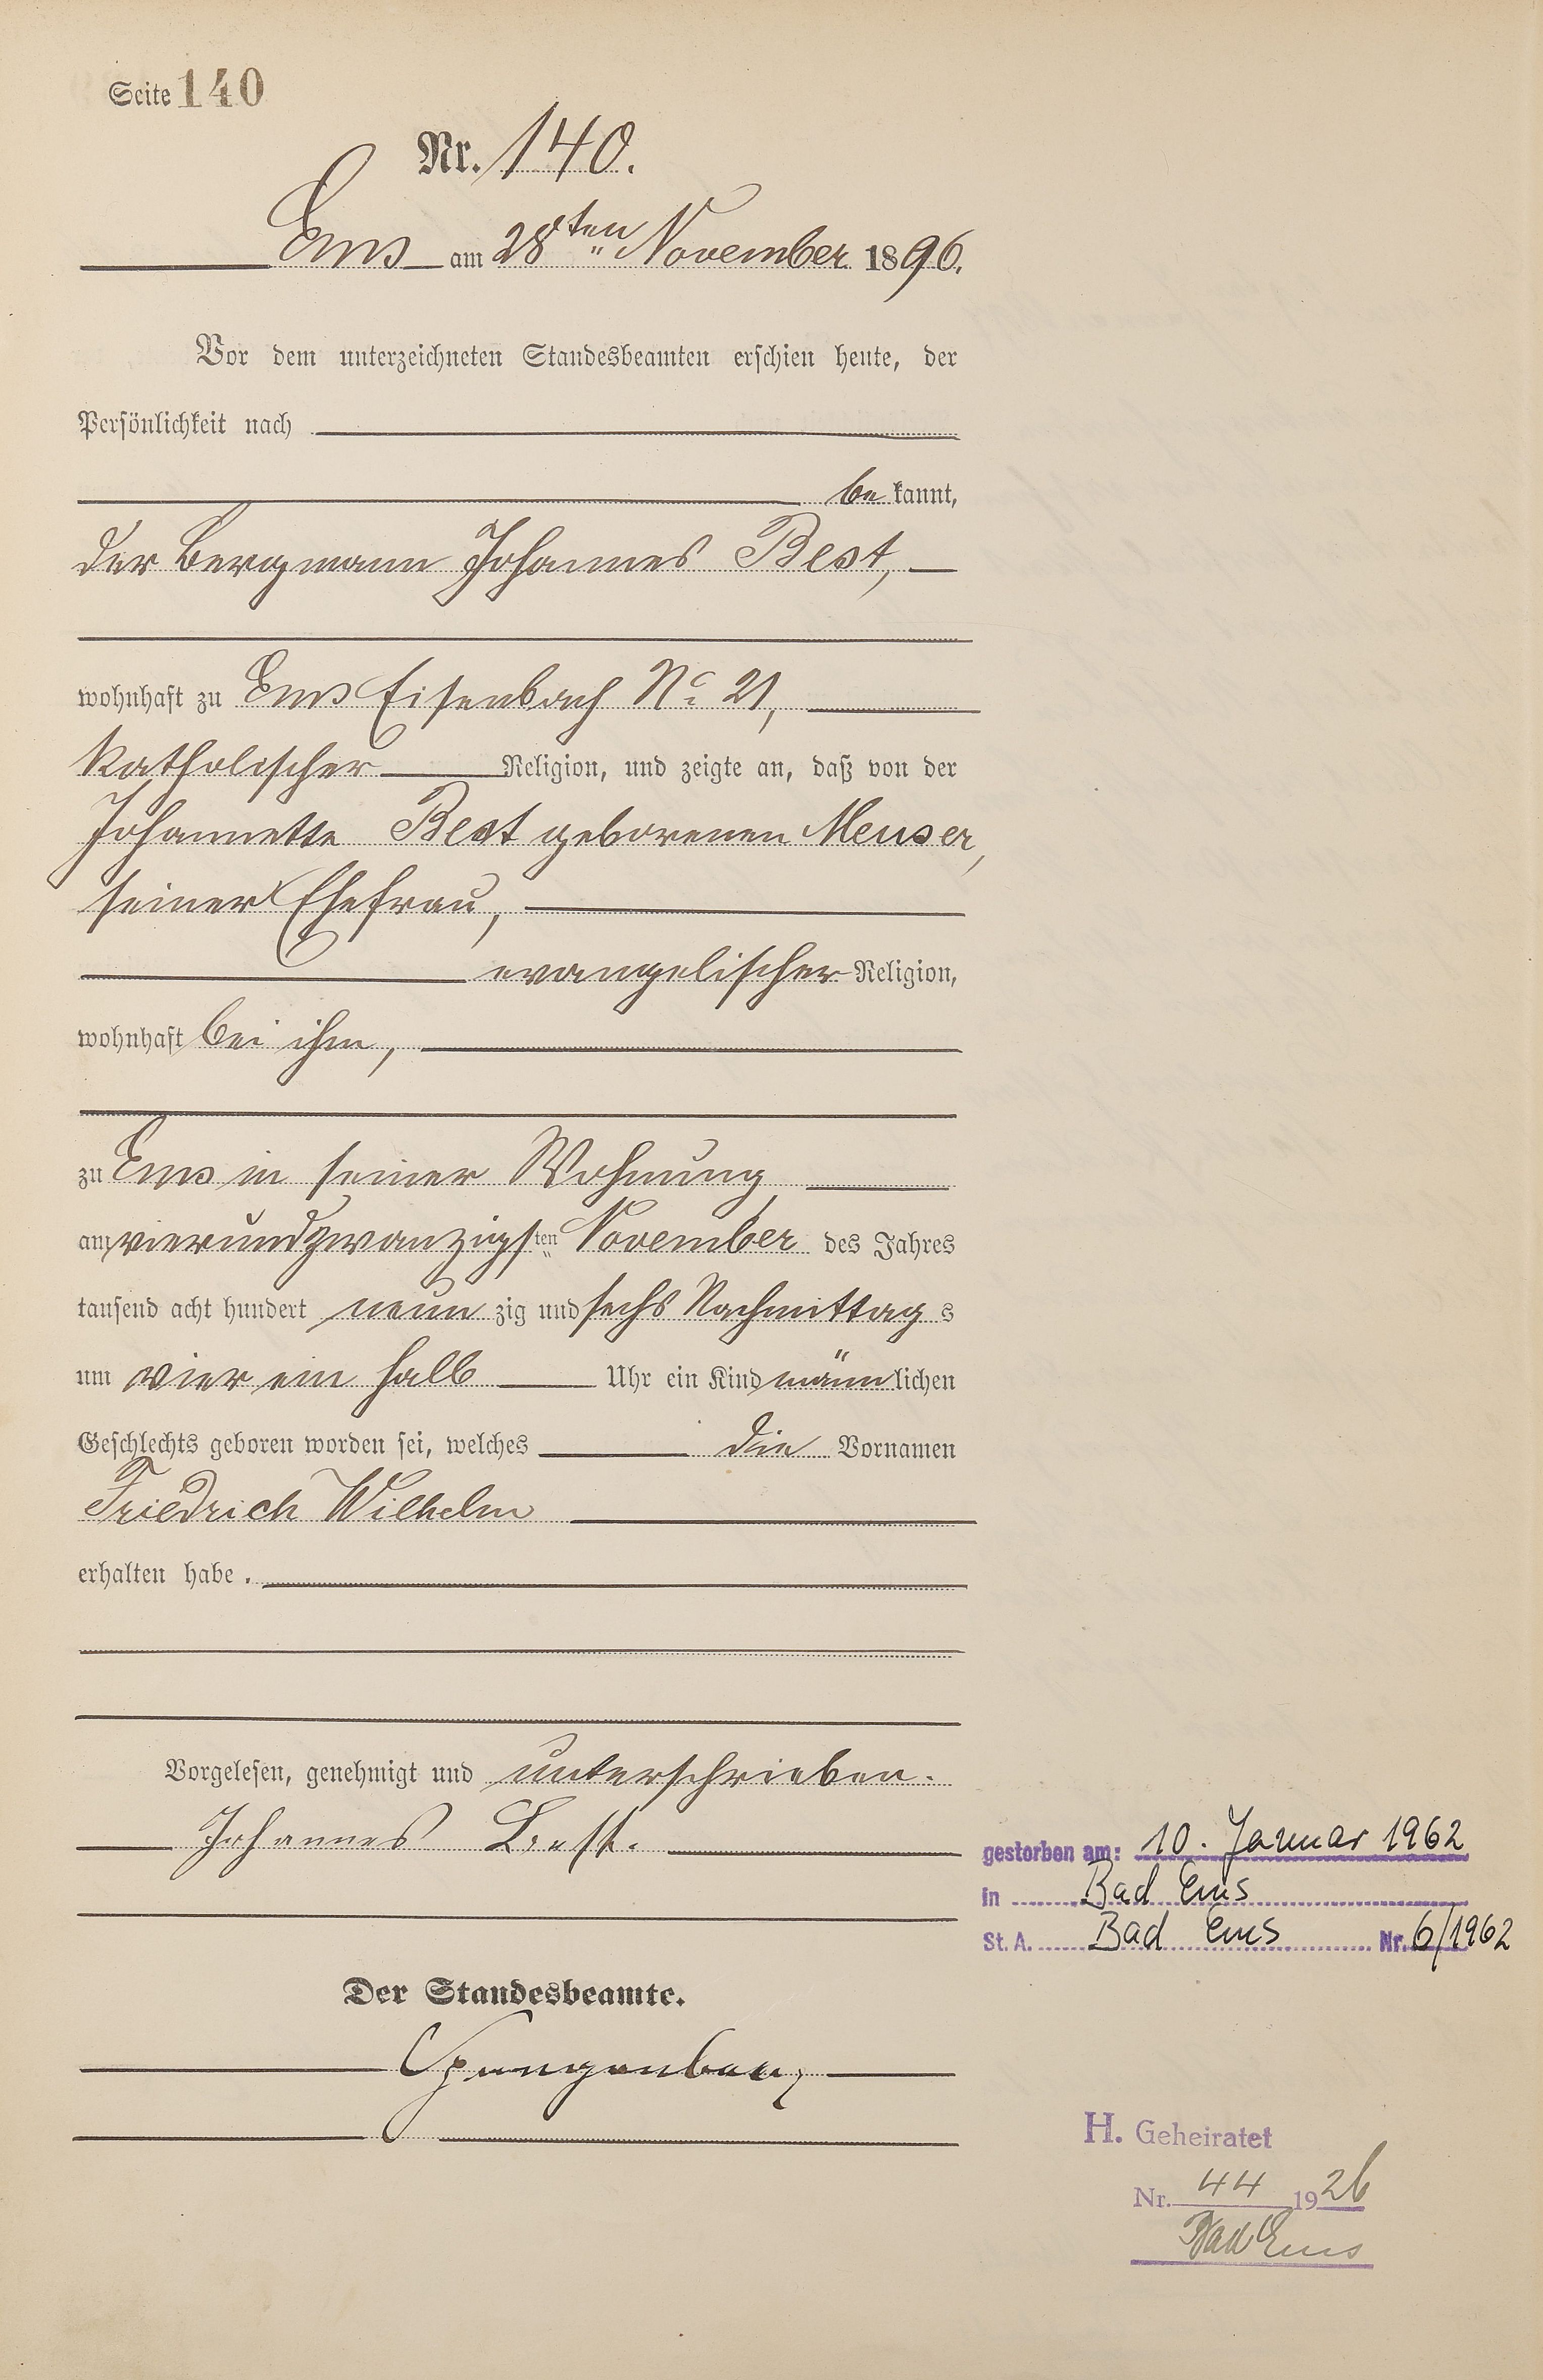 Seite 140
Nr. 140.
Ems am 28ten November 1896.
Vor dem unterzeichneten Standesbeamten erschien heute, der
Persönlichkeit nach
bekannt,
der Bergmann Johannes Best,
wohnhaft zu Ems Eisenbach No 21,
katholischer Religion, und zeigte an, daß von der
Johannette Best geborenen Meuser,
seiner Ehefrau,
evangelischer Religion,
wohnhaft bei ihm,
zu Ems in seiner Wohnung
am vierundzwanzigsten November des Jahres
tausend acht hundert neunzig und sechs Nachmittags
um vier ein halb Uhr ein Kind männlichen
Geschlechts geboren worden sei, welches die Vornamen
Friedrich Wilhelm
erhalten habe.
Vorgelesen, genehmigt und unterschrieben.
Johannes Best.
gestorben am: 10. Januar 1962
in Bad Ems
St. A. Bad Ems Nr. 6/1962
Der Standesbeamte.
H. Geheiratet
Nr. 44 1926
Bad Ems